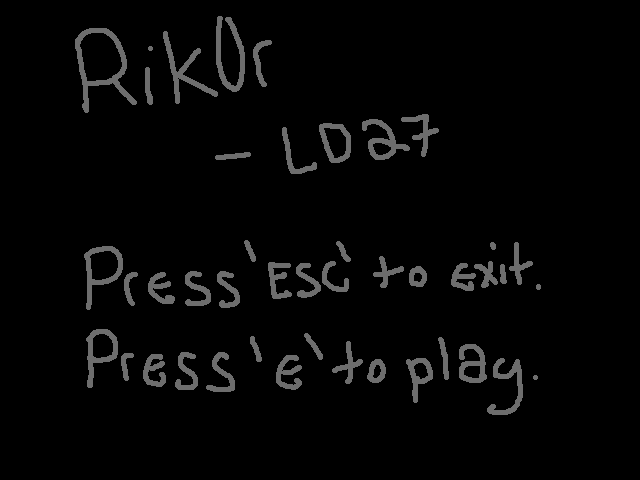 Rik0r
- LD27
Press 'ESC' to exit.
Press 'e' to play.